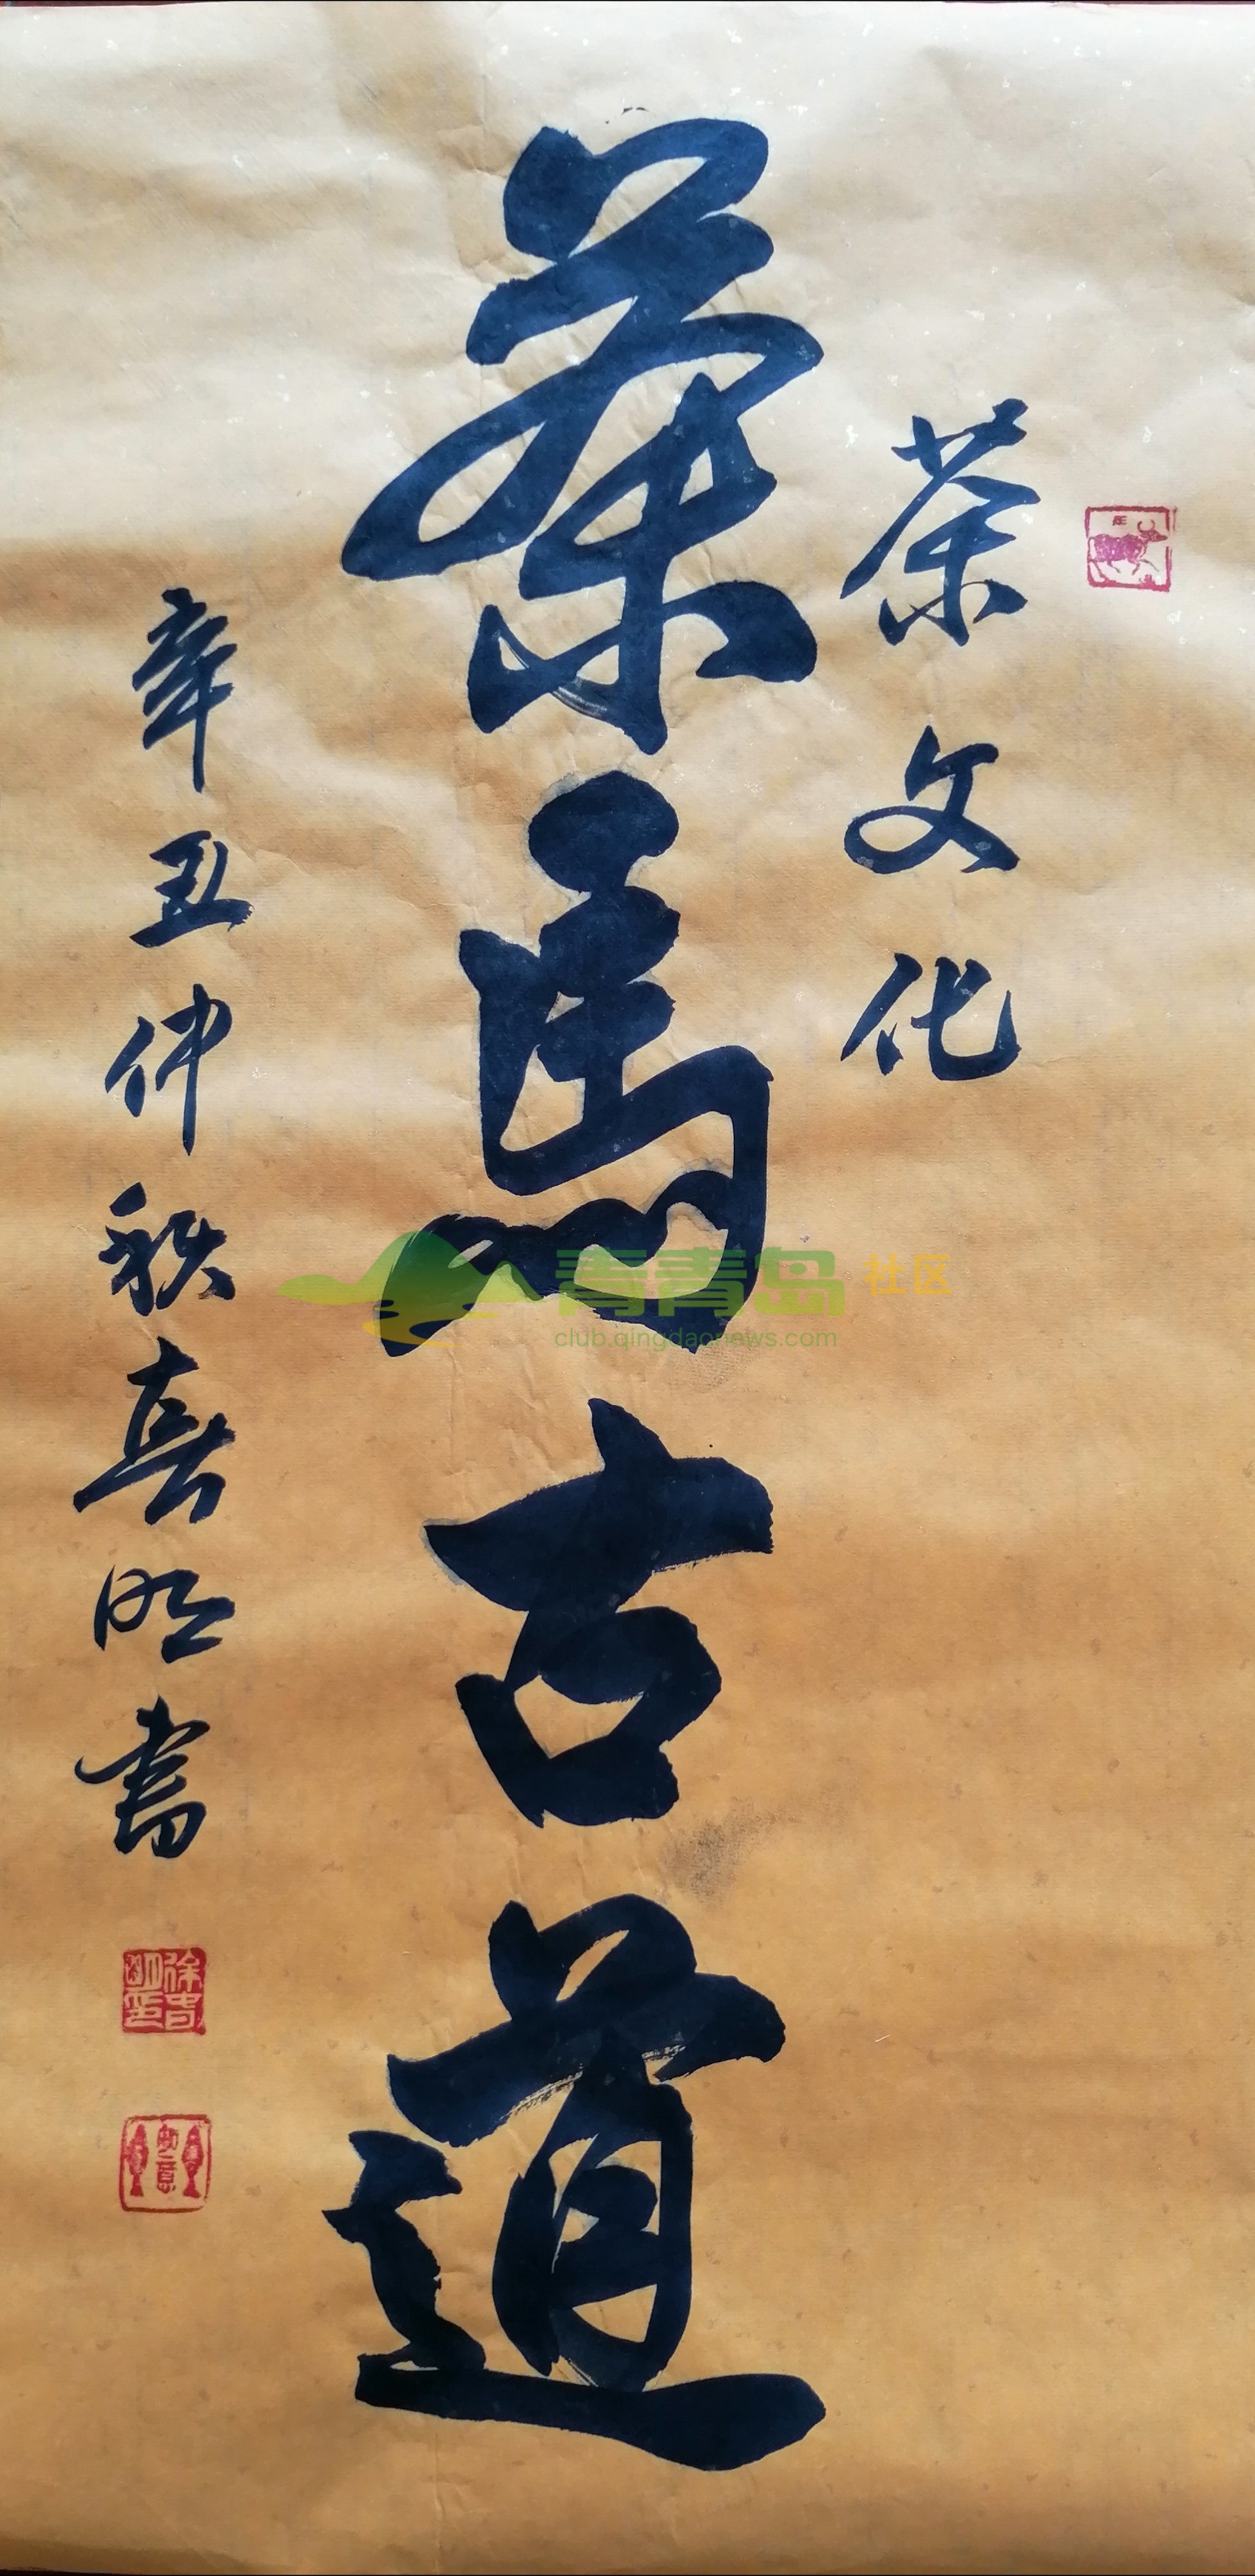 茶文化
茶馬古道
辛丑仲秋喜明書
如意
青青岛社区
club.qingdaonews.com